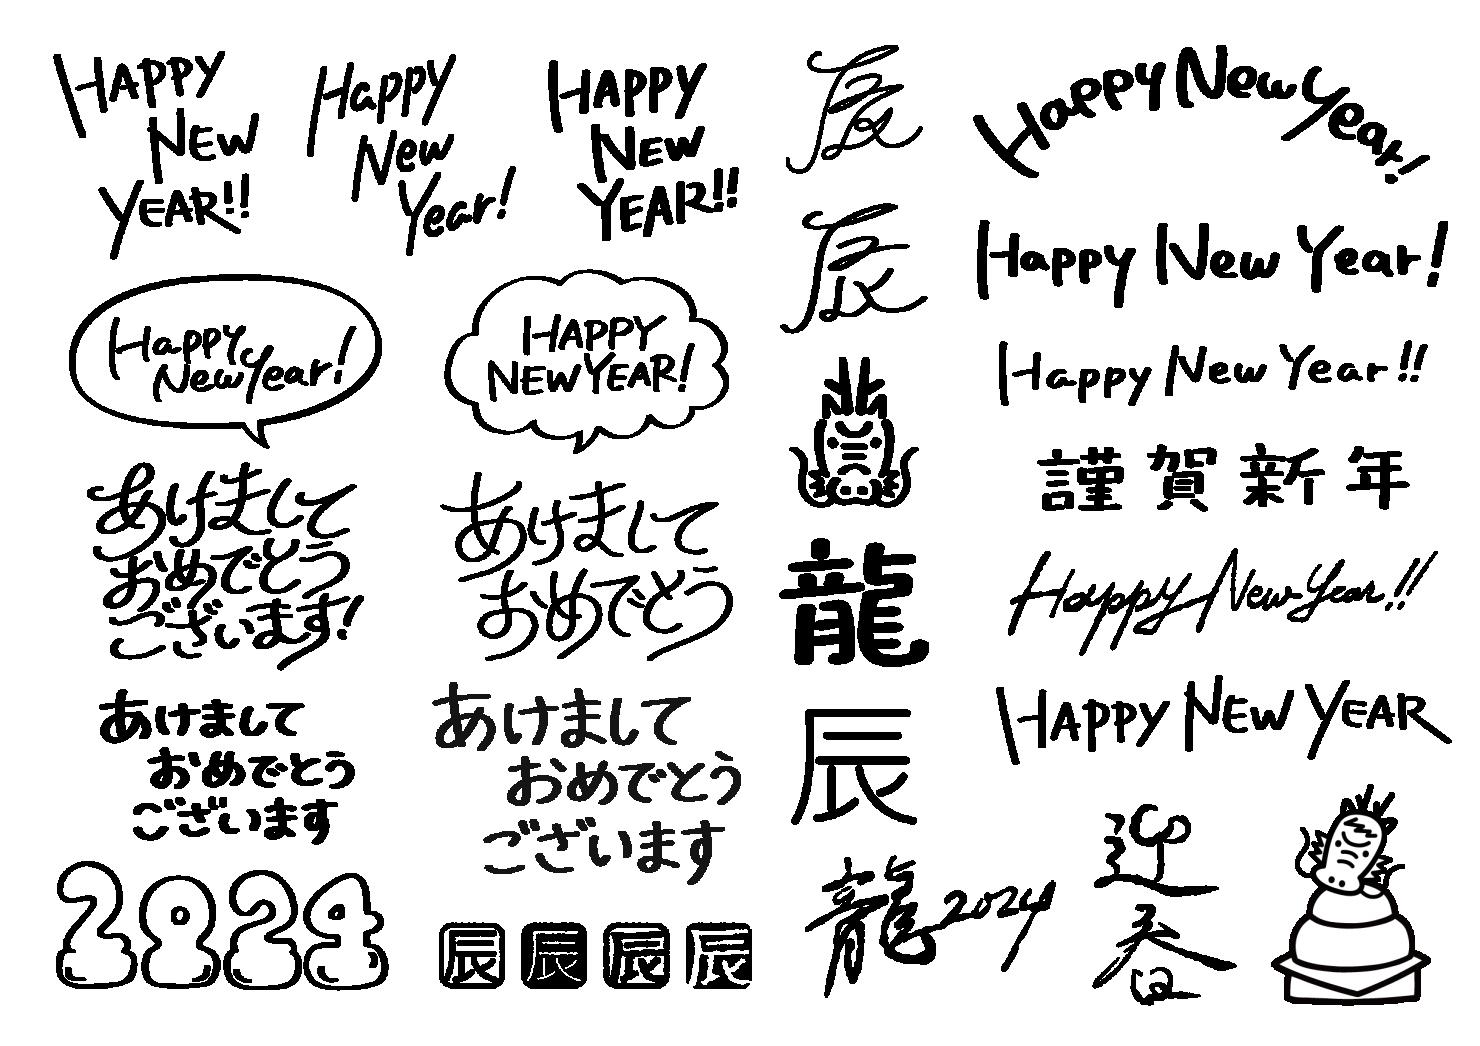 HAPPY
NEW
YEAR!!
Happy
New
Year!
HAPPY
NEW
YEAR!!
Happy
New Year!
HAPPY
NEW YEAR!
あけまして
おめでとう
ございます!
あけまして
おめでとう
あけまして
おめでとう
ございます
あけまして
おめでとう
ございます
2024
辰
辰
辰
辰
辰
辰
龍
辰
龍 2024
Happy New Year!
Happy New Year!
Happy New Year!!
謹賀新年
Happy New Year!!
HAPPY NEW YEAR
迎
春